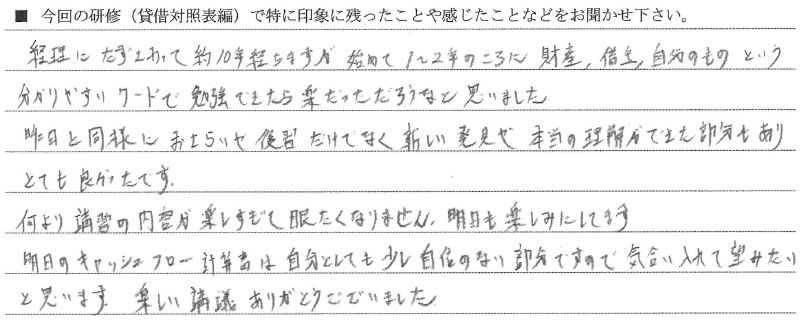 ■ 今回の研修（貸借対照表編）で特に印象に残ったことや感じたことなどをお聞かせ下さい。
経理にたずさわって約10年経ちますが 始めて1～2年のころに 財産, 借金, 自分のもの という
分かりやすい ワードで 勉強できたら楽だっただろうなと 思いました
昨日と同様に おさらいや 復習 だけでなく 新しい 発見や 本当の理解ができた部分もあり
とても良かったです.
何より 講習の内容が楽しすぎて眠たくなりません. 明日も楽しみにしてます
明日のキャッシュフロー計算書は自分としても少し自信のない部分ですので 気合い入れて望みたい
と思います 楽しい 講議 ありがとうございました